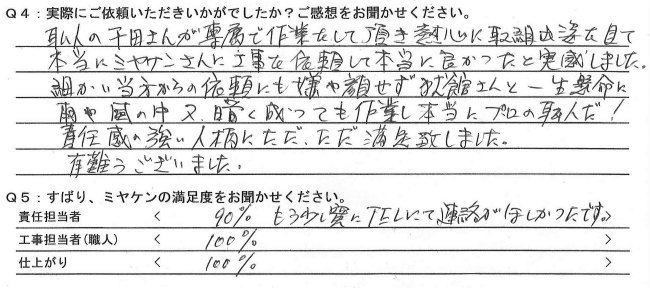 Q4：実際にご依頼いただきいかがでしたか？ご感想をお聞かせください。
職人の千田さんが専属で作業をして頂き熱心に取組む姿を見て
本当にミヤケンさんに工事を依頼して本当に良かったと実感しました。
細かい当方からの依頼にも嫌や顔せず 館さんと一生懸命に
雨や風の中又、暗く成っても作業し本当にプロの職人だ！
責任感の強い人柄にただ、ただ満足致しました。
有難うございました。
Q5：すばり、ミヤケンの満足度をお聞かせください。
責任担当者 < 90% もう少し蜜にTELにて連絡がほしかったです。
工事担当者（職人） < 100% >
仕上がり < 100% >